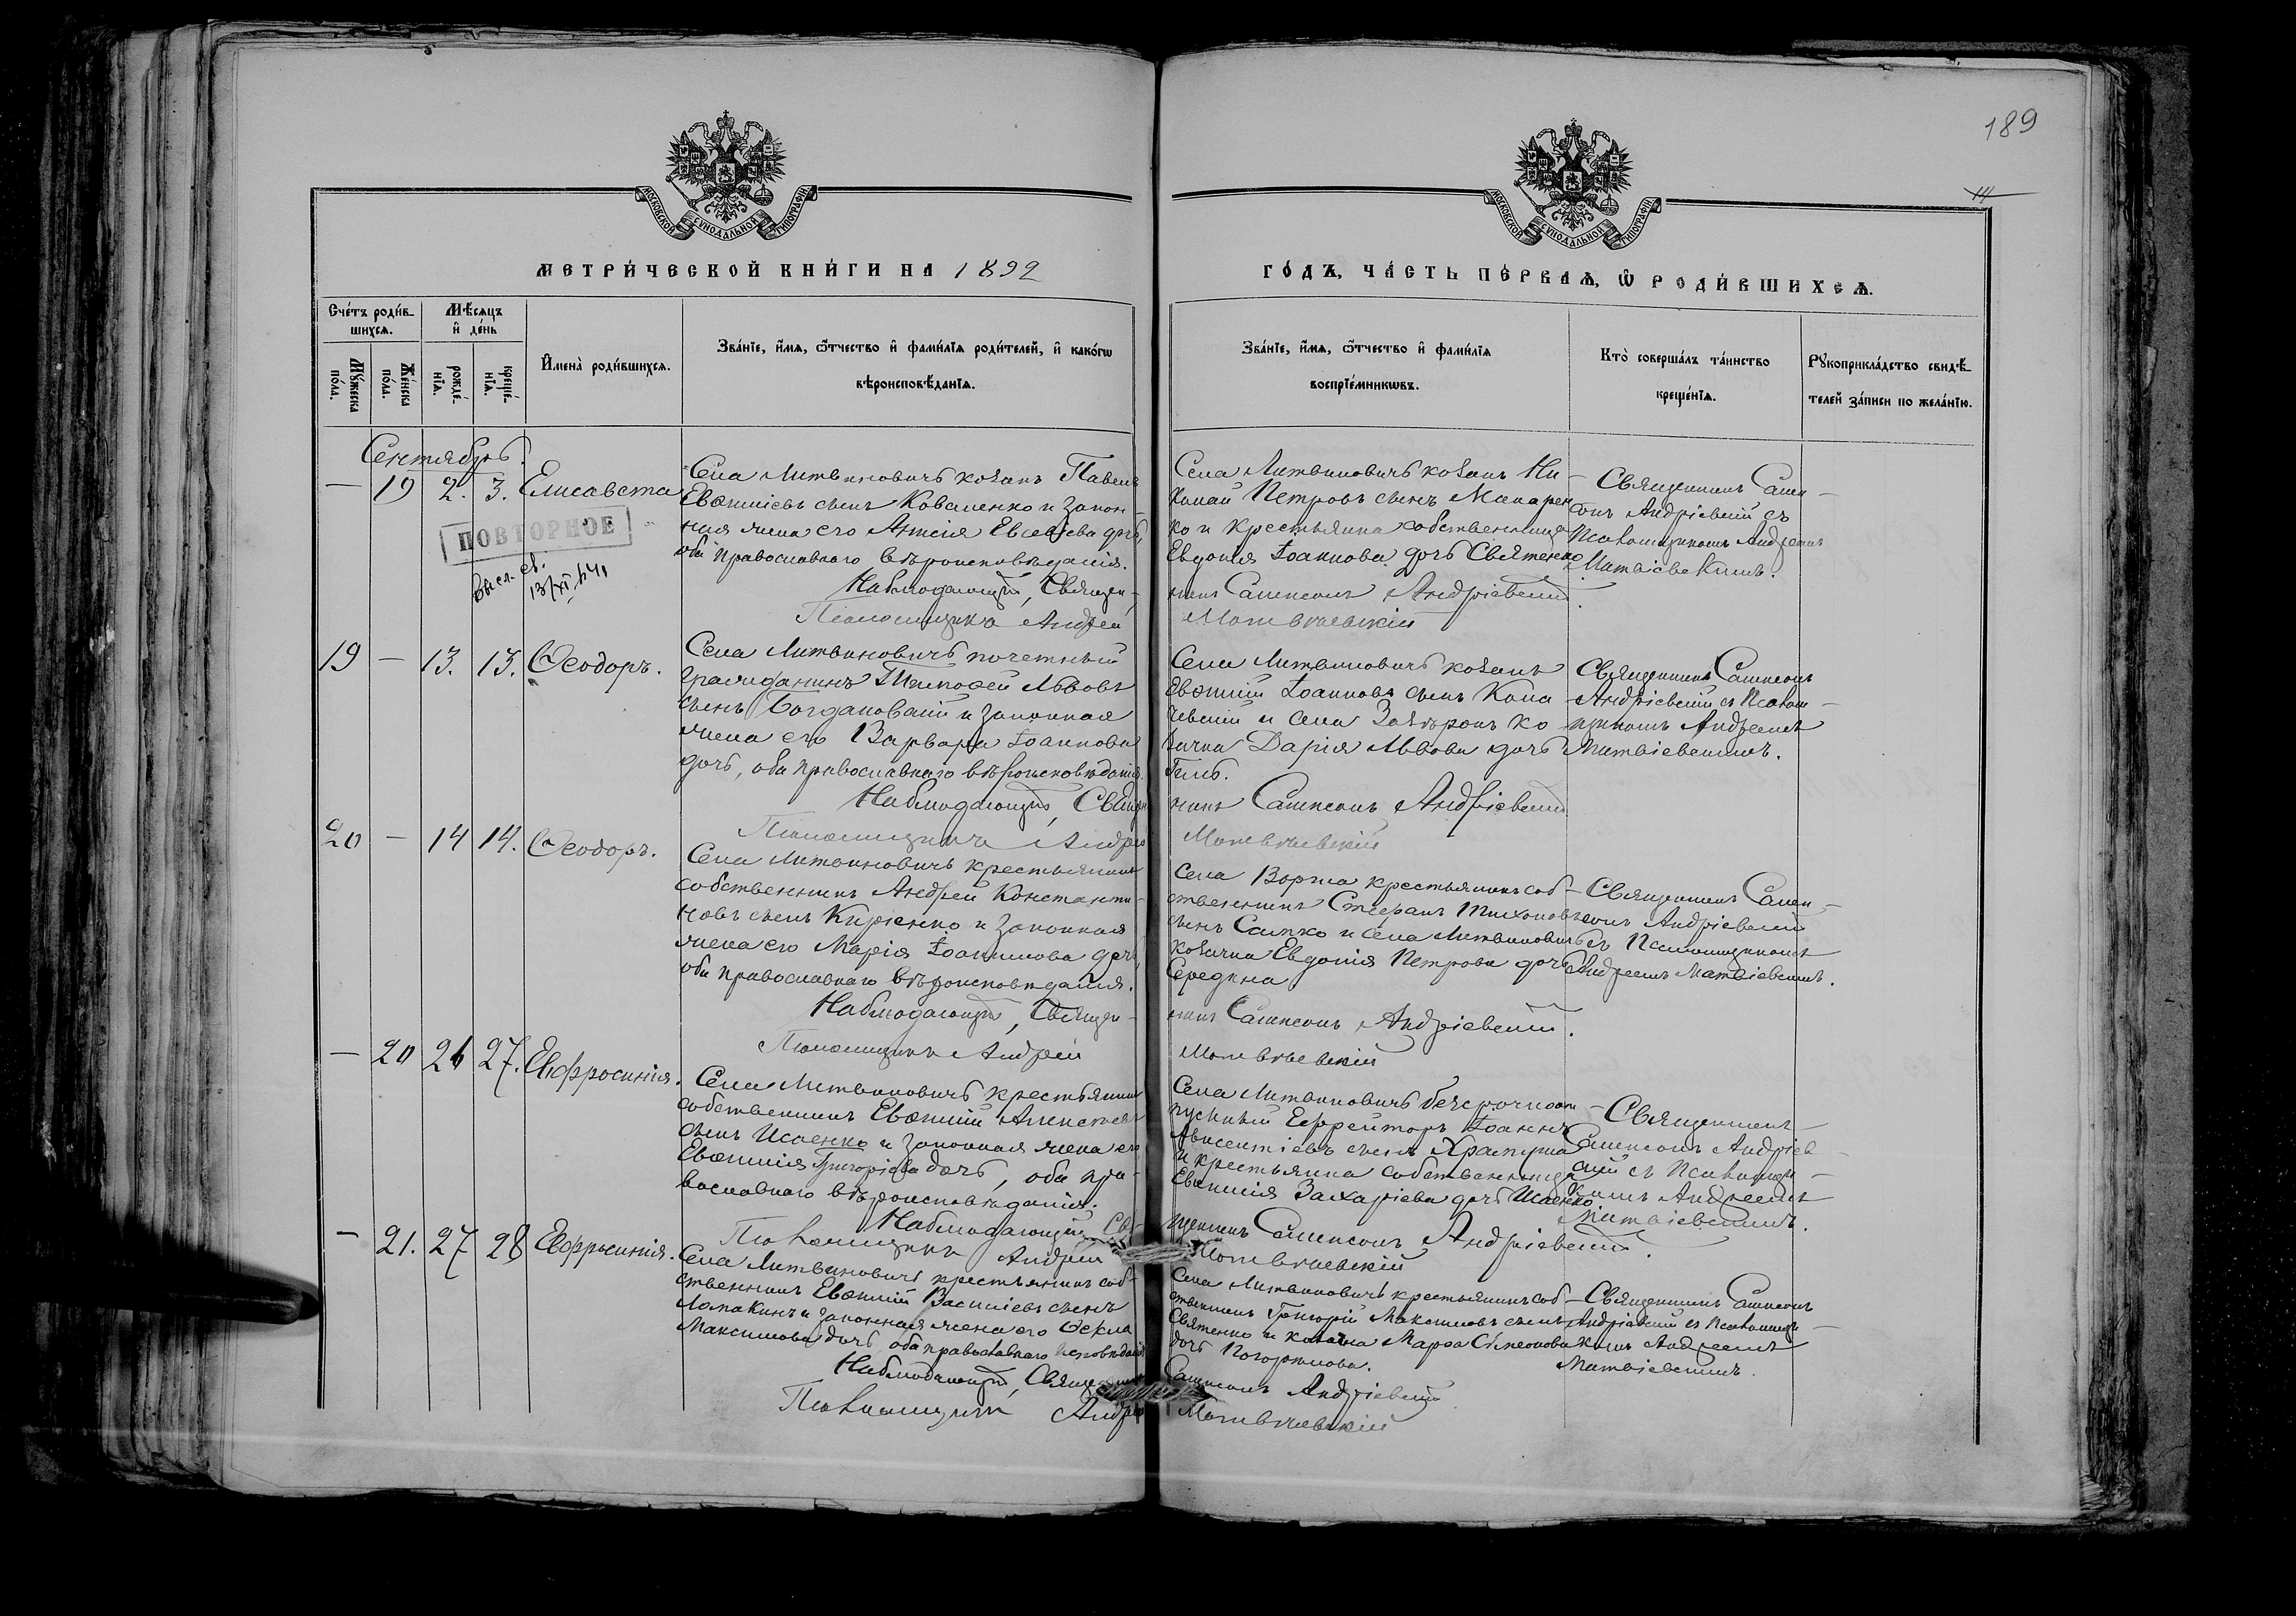 189
14
МОСКОВСКОЙ СѴНОДАЛЬНОЙ ТИПОГРАФІИ
МОСКОВСКОЙ СѴНОДАЛЬНОЙ ТИПОГРАФІИ
МЕТРИ́ЧЕСКОЙ КНИ́ГИ НА 1892
ГО́ДЪ, ЧА́СТЬ ПЕ́РВАѦ, Ѽ РОДИ́ВШИХСѦ.
Сче́тъ роди́в-
шихсѧ.
Мꙋ́жеска
по́ла.
Же́нска
по́ла.
Мѣ́сѧцъ
и҆ де́нь
рожде́-
нїѧ.
креще́-
нїѧ.
И҆мена̀ роди́вшихсѧ.
Зва́нїе, и҆́мѧ, ѻ҆́тчество и҆ фами́лїѧ роди́телей, и҆ како́гѡ
вѣроисповѣ́данїѧ.
Зва́нїе, и҆́мѧ, ѻ҆́тчество и҆ фами́лїѧ
воспрїе́мникѡвъ.
Кто̀ соверша́лъ та́инство
креще́нїѧ.
Рꙋкоприкла́дство свидѣ́-
телей за́писи по жела́нїю.
Сентябрь.
— 19 2. 3. Елисавета
ПОВТОРНОЕ
Высл. св.
13/XI 41
Села Литвиновичъ козакъ Павелъ
Евѳиміевъ сынъ Коваленко и закон-
ная жена его Евсевіева дочь,
оба православнаго вѣроисповѣданія.
Наблюдающій, Священ-
Псаломщикъ Андрей
Села Литвиновичъ козакъ Ни-
колай Петровъ сынъ Макарен
ко и крестьянка собственница
Евдокія Іоаннова дочь Святенко
никъ Сампсонъ Андріевскій.
Матвѣевскій
Священникъ Самп-
сонъ Андріевскій съ
Псаломщикомъ Андреемъ
Матвіевскимъ.
19 — 13. 13. Ѳеодоръ.
Села Литвиновичъ почетный
гражданинъ Тимоѳей Львовъ
сынъ Богдановскій и законная
жена его Варвара Іоаннова
дочь, оба православнаго вѣроисповѣданія.
Наблюдающій, Священ
Псаломщикъ Андрей
Села Литвиновичъ козакъ
Евѳимій Іоанновъ сынъ Копа
чевскій и села Зазѣрокъ ко
зачка Дарія Львова дочь
Гыб.
никъ Сампсонъ Андріевскій
Матвѣевскій
Священникъ Сампсонъ
Андріевскій съ Псалом-
щикомъ Андреемъ
Матвіевскимъ.
20 — 14 14. Ѳеодоръ.
Села Литвиновичъ крестьянинъ
собственникъ Андрей Константи-
новъ сынъ Киріенко и законная
жена его Марія Іоакимова дочь,
оба православнаго вѣроисповѣданія.
Наблюдающій, Священ-
Псаломщикъ Андрей
Села Воргла крестьянинъ соб-
ственникъ Стефанъ Тихоновъ
сынъ Сапко и села Литвиновичъ
козачка Евдокія Петрова дочь
Середина
никъ Сампсонъ Андріевскій.
Матвѣевскій
Священникъ Самп-
сонъ Андріевскій
съ Псаломщикомъ
Андреемъ Матвіевскимъ.
— 20 26 27. Евфросинія.
Села Литвиновичъ крестьянинъ
собственникъ Евѳимій Алексѣевъ
сынъ Исаенко и законная жена его
Евѳимія Григоріева дочь, оба пра-
вославнаго вѣроисповѣданія.
Наблюдающій, Свя-
Псаломщикъ Андрей
Села Литвиновичъ безсрочноот
пускный Ефрейторъ Іоаннъ
Авксентіевъ сынъ Храпунъ
и крестьянка собственница
Евѳимія Захаріева дочь Исаенко
щенникъ Сампсонъ Андріевскій.
Матвѣевскій
Священникъ
Сампсонъ Андріев-
скій съ Псаломщи-
комъ Андреемъ
Матвіевскимъ.
— 21. 27 28 Евфросинія.
Села Литвиновичъ крестьянинъ соб-
ственникъ Евѳимій Василіевъ сынъ
Ломакинъ и законная жена его Ѳекла
Максимова дочь, оба православнаго исповѣданія
Наблюдающій, Священникъ
Псаломщикъ Андрей
Села Литвиновичъ крестьянинъ соб-
ственникъ Григорій Максимовъ сынъ
Святенко и козачка Марѳа Сѵмеонова
дочь Погорѣлова.
Сампсонъ Андріевскій
Матвѣевскій
Священникъ Сампсонъ
Андріевскій съ Псаломщи-
комъ Андреемъ
Матвіевскимъ.